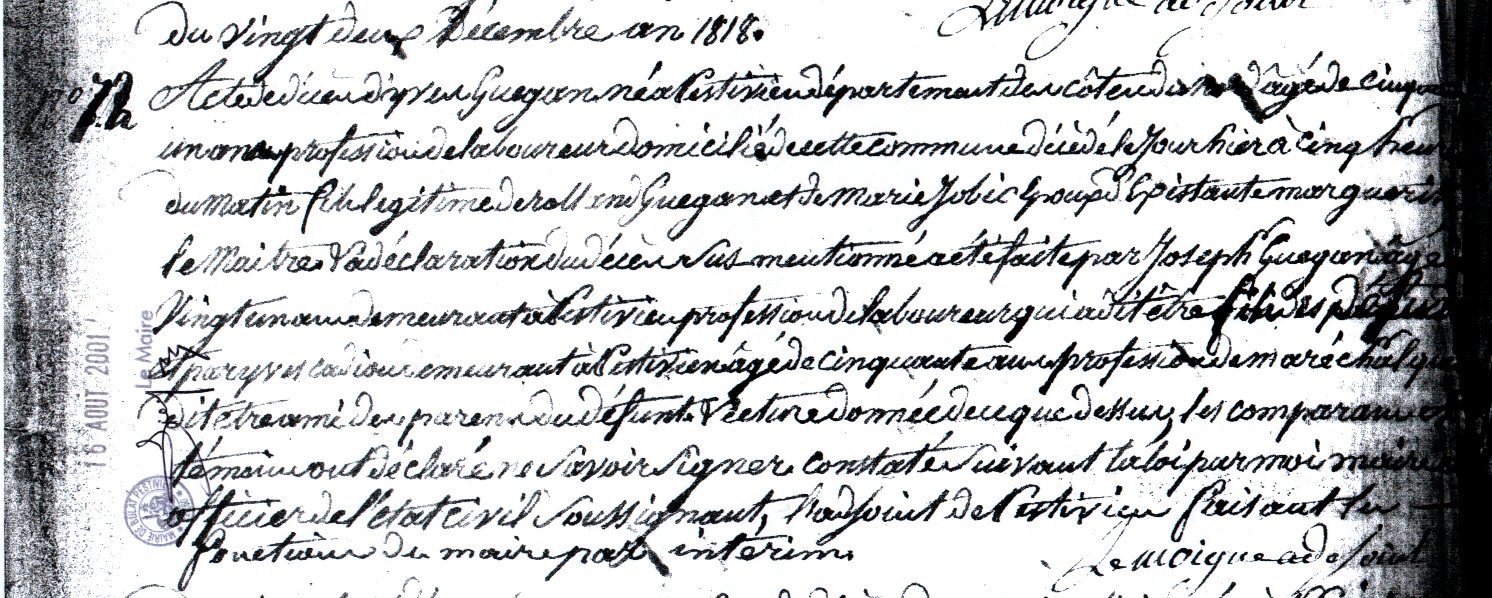 Lemoigne adjoint
du vingt deux Décembre an 1818.
n° 72
Acte de decen d'yven Guegan né a Pestivien département den côten du nord agé de cinquante
un ans profession de laboureur domicilié de cette commune décédé le Jour hier à cinq heures
du matin fils legitime de rolland Guegan et de Marie Jobic Epistante marguerite
le Maitre La déclaration du décen sus mentionné a été faite par Joseph Guegan âgé
Vingt un ans demeurant à Pestivien profession de laboureur qui a dit être fils des
par yves cadiou demeurant à Pestivien âgé de cinquante ans profession de maréchal qui
dit être ami den parens du défunt Lecture donnée de ce que dessus, les comparans et
témoins ont déclaré ne savoir signer constaté suivant la loi par moi maire
officier de l'état civil soussignant, l'adjoint de Pestivien faisant les
fonctions de maire par intérim.
Le moigne adjoint
Le Maire
16 AOUT 2001